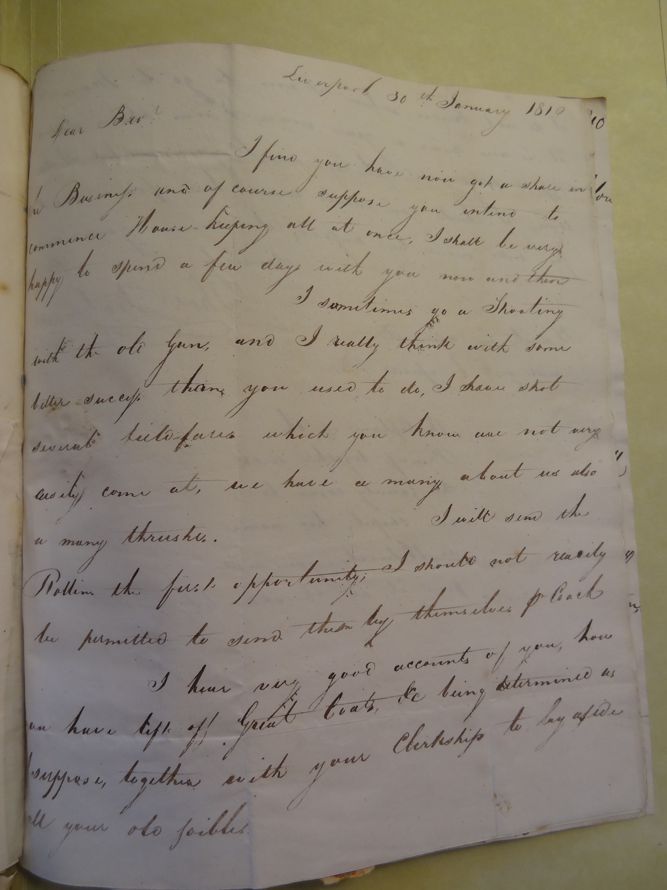 Liverpool 30th January 1810
Dear Bro!
I find you have now got a share in
Business and of course suppose you intend to
commence House-keeping all at once, I shall be very
happy to spend a few days with you now and then
I sometimes go a Shooting
with the old Gun, and I really think with some
better success than you used to do, I have shot
several which you know are not very
easily come at, we have a many about us also
a many thrushes.
I will send the
the first opportunity, I should not readily
be permitted to send them by themselves Coach
I hear very good accounts of you, how
you have left off Great Coats, &c being determined as
I suppose, together with your Clerkship to lay aside
all your old foibles